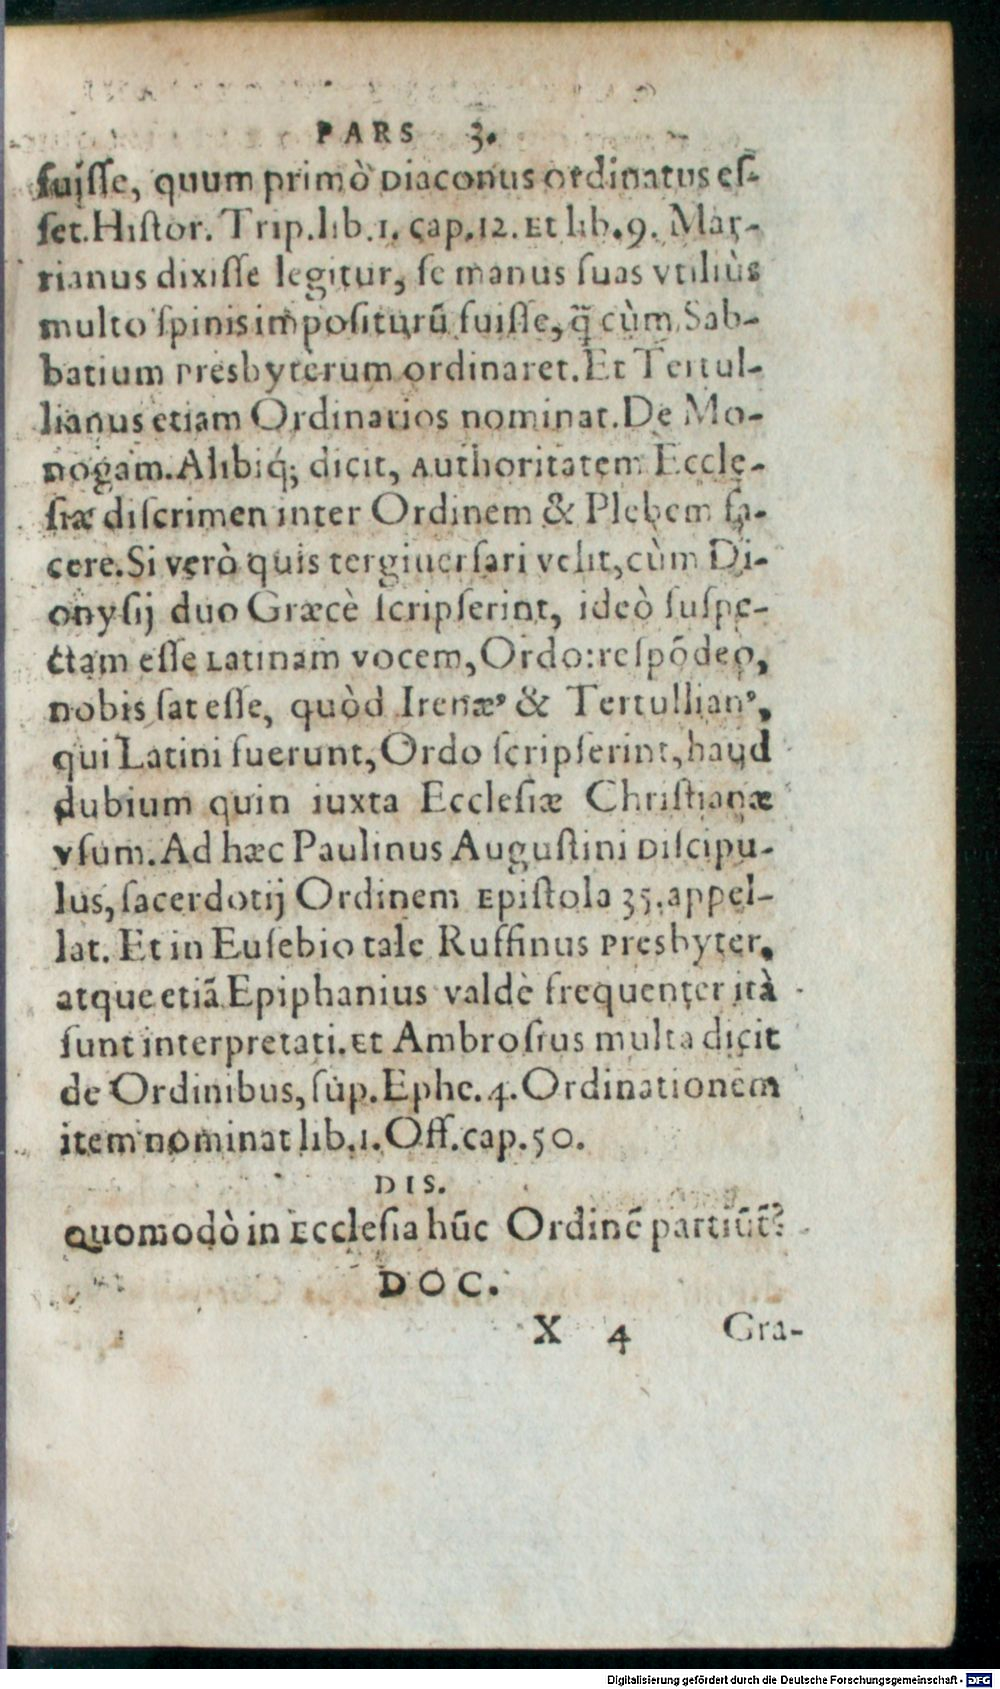 PARS 3.
fuiſſe, quum primò Diaconus ordinatus eſ-
ſet. Hiſtor. Trip. lib. 1. cap. 12. Et lib. 9. Mar-
rianus dixiſſe legitur, ſe manus ſuas vtiliùs
multo ſpinis impoſiturũ fuiſſe, q̃ cùm Sab-
batium Presbyterum ordinaret. Et Tertul-
lianus etiam Ordinarios nominat. De Mo-
nogam. Alibiq́; dicit, Authoritatem Eccle-
ſiæ diſcrimen inter Ordinem & Plebem fa-
cere. Si verò quis tergiuerſari velit, cùm Di-
onyſij duo Græcè ſcripſerint, ideò ſuſpe-
ctam eſſe Latinam vocem, Ordo: reſpõdeo,
nobis ſat eſſe, quòd Irenæꝰ & Tertullianꝰ,
qui Latini fuerunt, Ordo ſcripſerint, haud
dubium quin iuxta Eccleſiæ Chriſtianæ
vſum. Ad hæc Paulinus Auguſtini Diſcipu-
lus, ſacerdotij Ordinem Epiſtola 35. appel-
lat. Et in Euſebio tale Ruffinus Presbyter,
atque etiã Epiphanius valdè frequenter ità
ſunt interpretati. Et Ambroſius multa dicit
de Ordinibus, ſup. Ephe. 4. Ordinationem
item nominat lib. 1. Off. cap. 50.
DIS.
Quomodò in Eccleſia hũc Ordinẽ partiũt̃?
DOC.
X 4 Gra-
Digitalisierung gefördert durch die Deutsche Forschungsgemeinschaft - DFG